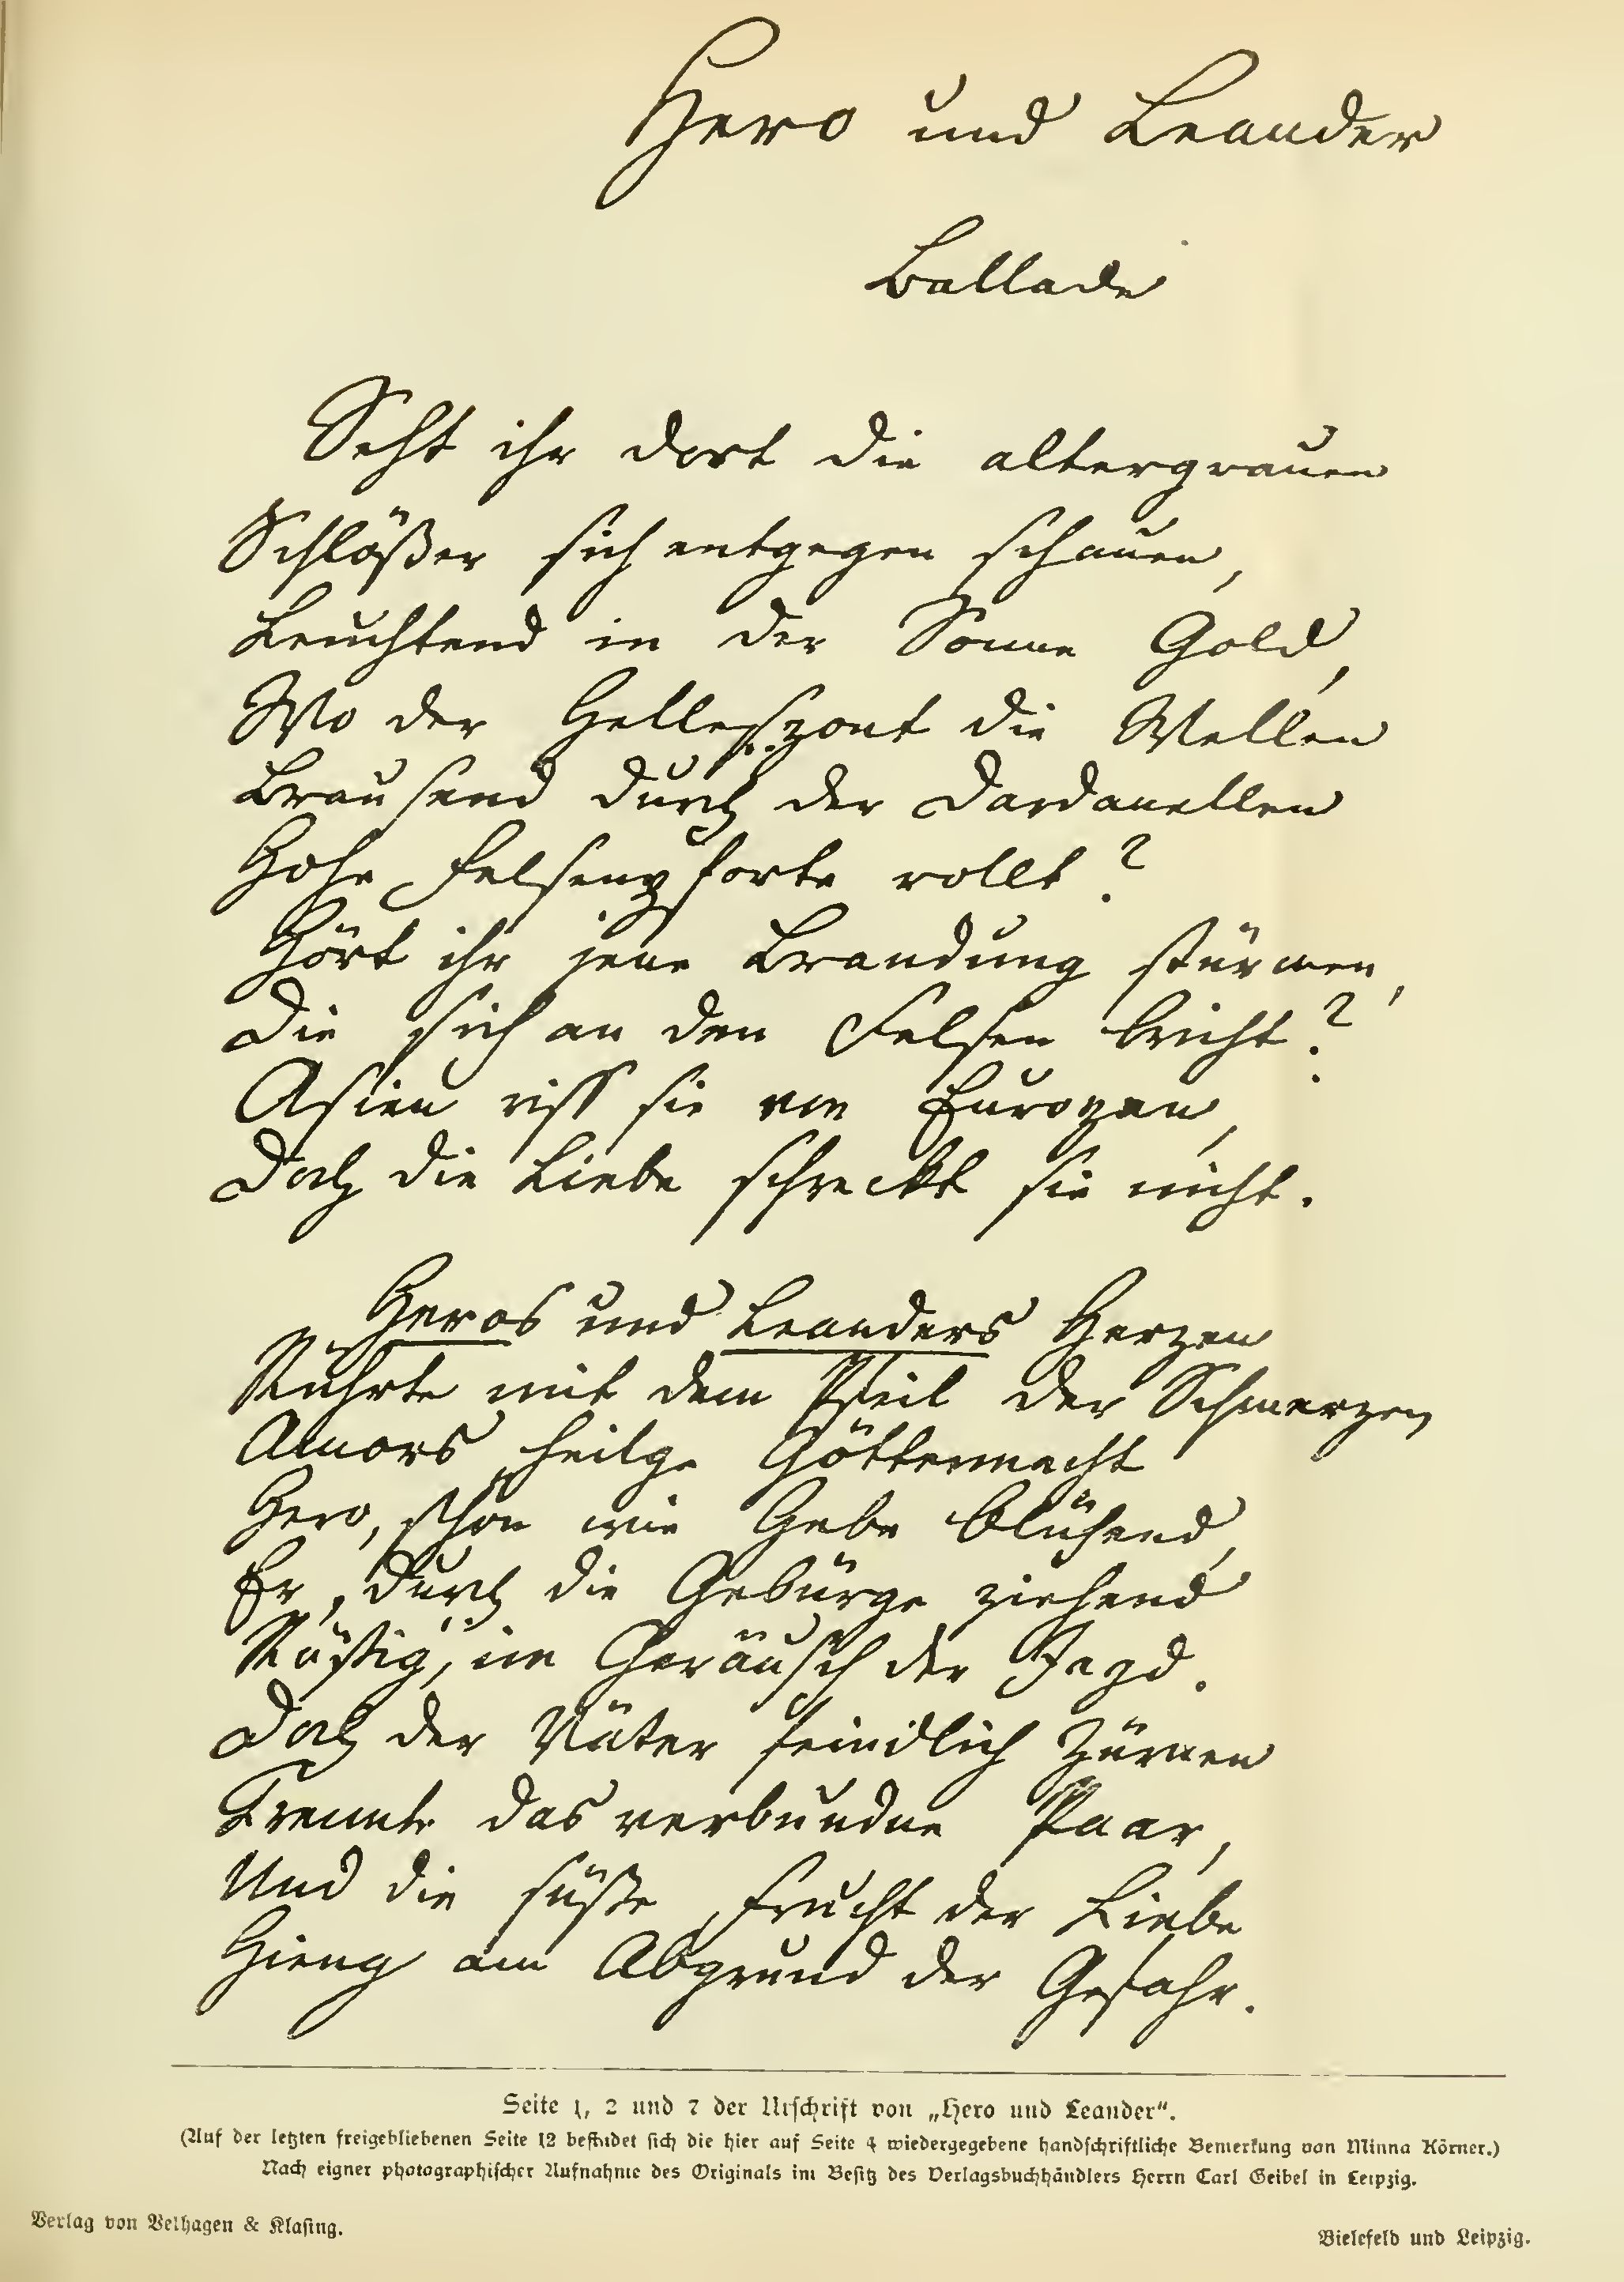 Hero und Leander
Ballade
Seht ihr dort die altergrauen
Schlößer sich entgegen schauen,
Leuchtend in der Sonne Gold,
Wo der Hellespont die Wellen
Brausend durch der Dardanellen
Hohe Felsenpforte rollt?
Hört ihr jene Brandung stürmen,
Die sich an den Felsen bricht?
Asien riss sie von Europen,
Doch die Liebe schreckt sie nicht.
Heros und Leanders Herzen
Rührte mit dem Pfeil der Schmerzen
Amors heilge Göttermacht
Hero, schön wie Hebe blühend,
Er, durch die Gebürge ziehend
Rüstig, im Geräusch der Jagd.
Doch der Väter feindlich Zürnen
Trennte das verbundne Paar,
Und die süße Frucht der Liebe
Hieng am Abgrund der Gefahr.
Seite 1, 2 und 7 der Urschrift von „Hero und Leander“.
(Auf der letzten freigebliebenen Seite 12 befindet sich die hier auf Seite 4 wiedergegebene handschriftliche Bemerkung von Minna Körner.)
Nach eigner photographischer Aufnahme des Originals im Besitz des Verlagsbuchhändlers Herrn Carl Geibel in Leipzig.
Verlag von Velhagen & Klasing.
Bielefeld und Leipzig.